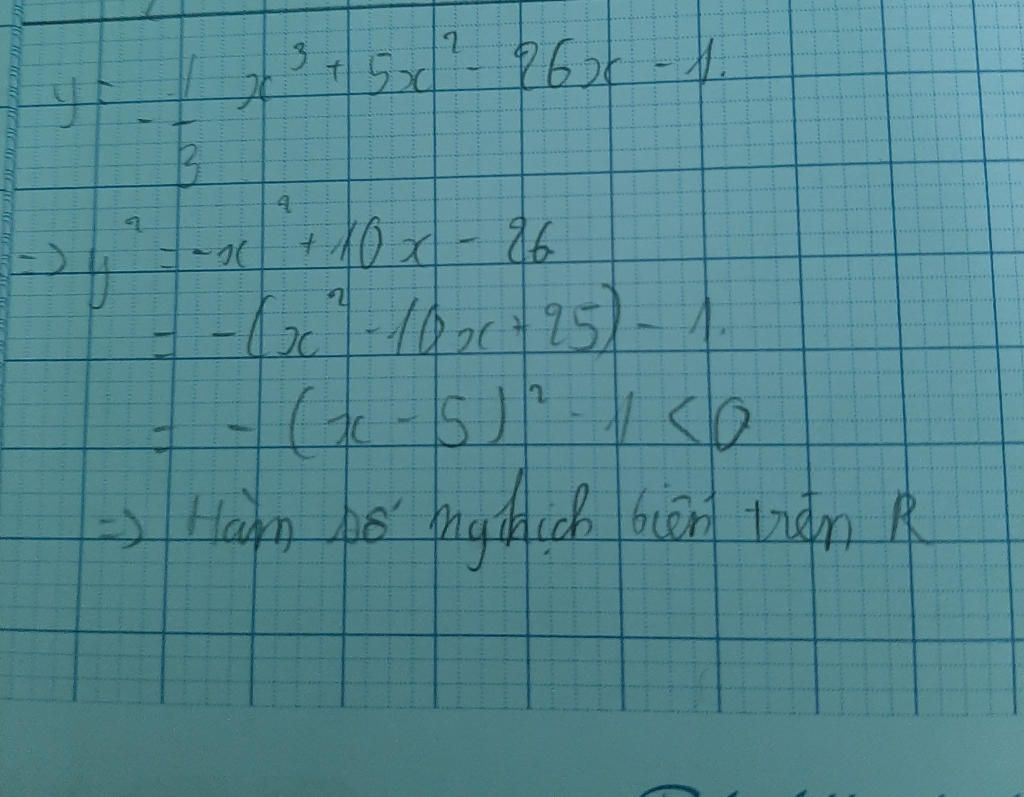 y = -1/3 x³ + 5x² - 26x - 1.
=> y² = -x² + 10x - 26
= -(x² - 10x + 25) - 1.
= -(x - 5)² - 1 < 0
=> Hàm số nghịch biến trên R